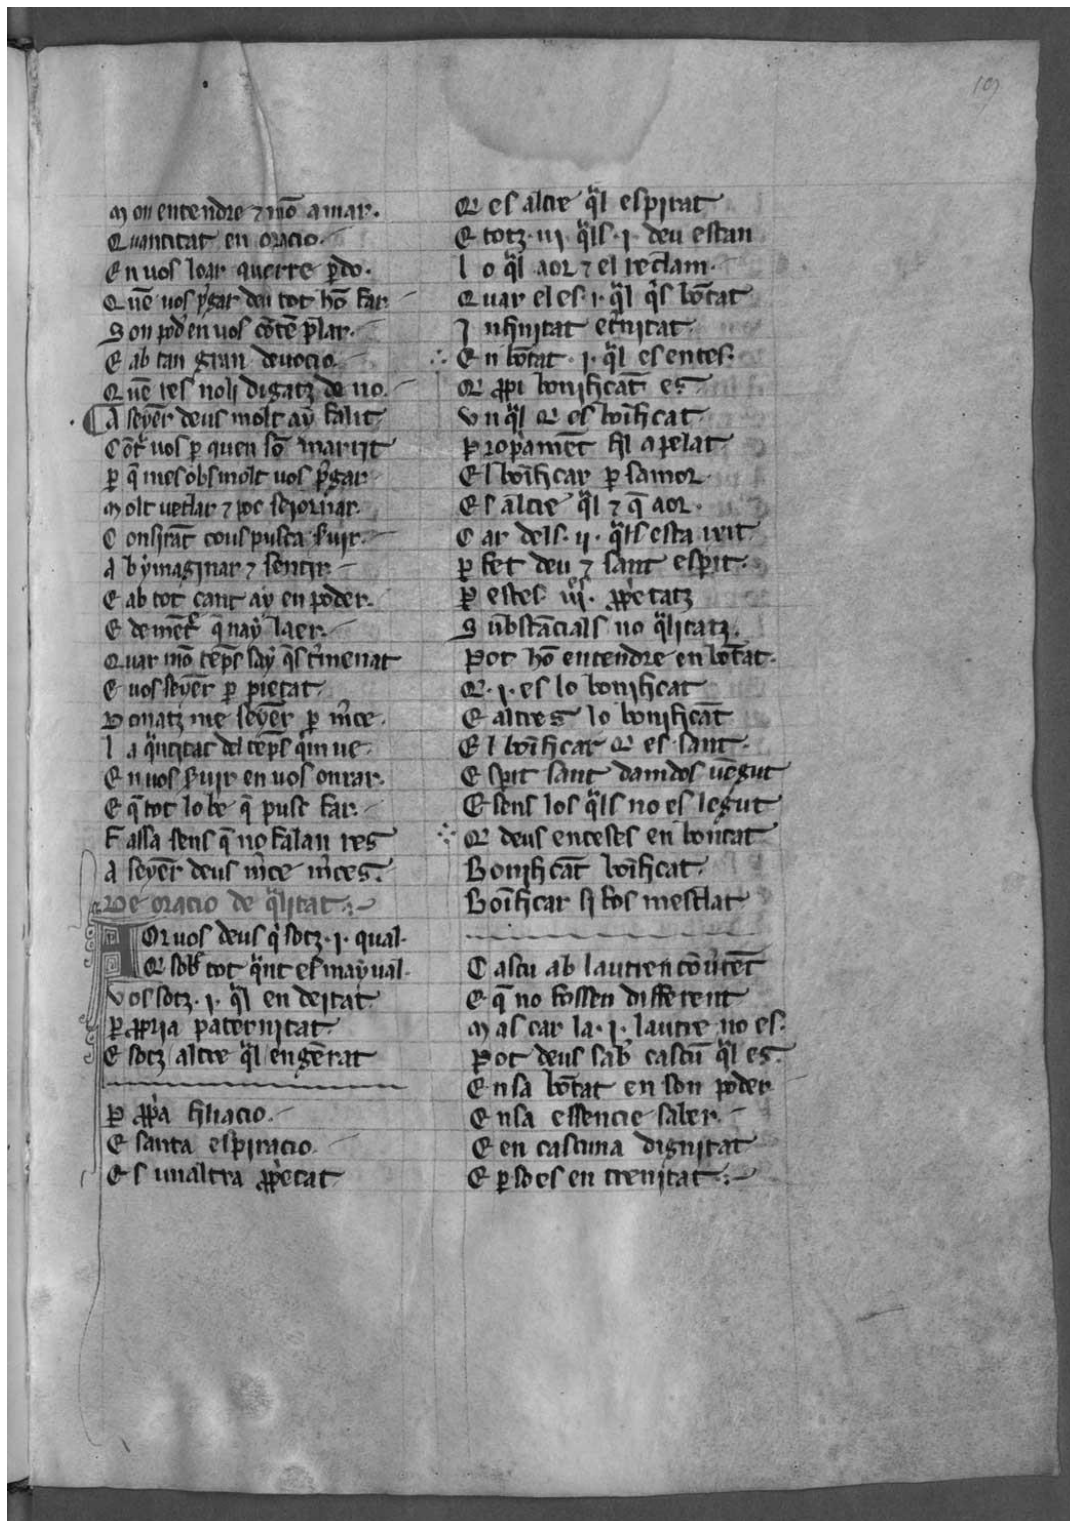 M on entendre ⁊ mō amar.
Q uantitat en oracio.
E n vos loar querre ꝑdo.
Q uē vos pͥgar deu tot hō far
S on pod' en vos cōtēplar.
E ab tan gran deuocio.
Q uē res nolj digatz de no.
A seyēr deus molt ay falit
C ōtͣ vos ꝑ quen sō marrit
ꝑ q̄ mes obs molt vos pͥgar
M olt vetlar ⁊ poc seiornar.
C onsirāt cous pusca s'uir.
A b ymaginar ⁊ sentir.
E ab tot cant ay en poder.
E demētͤ q̄ nay laer.
Q uar mō tēps say q̄s t'menat
E vos seyēr ꝑ pietat
D onatz me seyēr ꝑ m'ce.
L a qͣntitat del tēps qͥm ue
E n vos s'uir en vos onrar.
E q̄ tot lo be q̄ pusc far.
F assa sens q̄ no falan res
A seyēr deus m'ce m'ces.
De oracio de qͣlitat
A Or vos deus qͥ sotz .i. qual.
Q sobͤ tot qͣnt es may ual.
V os sotz .i. qͣl en deitat
ꝑ ꝓpia paternitat
E sotz altre qͣl engērat
ꝑ ꝓpͥa filiacio.
E santa espiracio.
E s unaltra ꝓpͥetat
Q es altre qͣl espirat
E totz .iii. qͣls .i. deu estan
L o qͣl aor ⁊ el reclam.
Q uar el es .i. qͣl qͥs bōtat
I nfinitat et'nitat
E n bōtat .i. qͣl es entes.
Q ꝓpi bonificāt es
V n qͣl Q es boīficat
P ropͥamēt fil apelat
E l boīficar ꝑ samor
E s altre qͣl ⁊ q̄ aor.
C ar dels .ii. qͣls esta ixit
ꝑ fet deu ⁊ sant esꝑit.
ꝑ estes .iii. ꝓpͥetatz
S ubstācials no qͣlitatz.
P ot hō entendre en bōtat.
Q .i. es lo bonificat
E altre s lo bonificāt
E l boīficar Q es sant.
E sꝑit sant damdos uēgut
E sens los qͣls no es legut
Q deus enteses en bontat
B onificāt boīficat.
B oīficar si fos mesclat
C ascu ab lautren cōuētēt
E q̄ no fossen different
M as car la .i. lautre no es.
P ot deus sab' cascū qͣl es.
E n sa bōtat en son poder
E n sa essencie saber.
E en cascuna dignitat
E ꝑ so es en trenitat